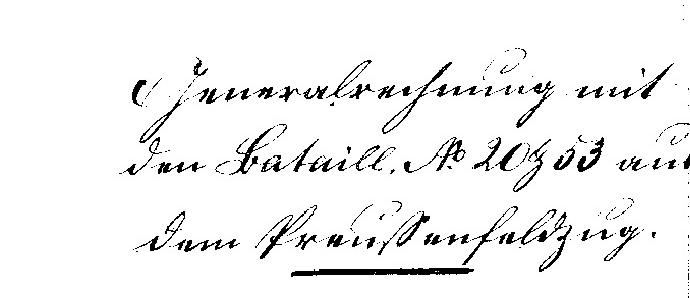 Generalrechnung mit
den Bataill. No 20 & 53 aus
dem Preussenfeldzug.